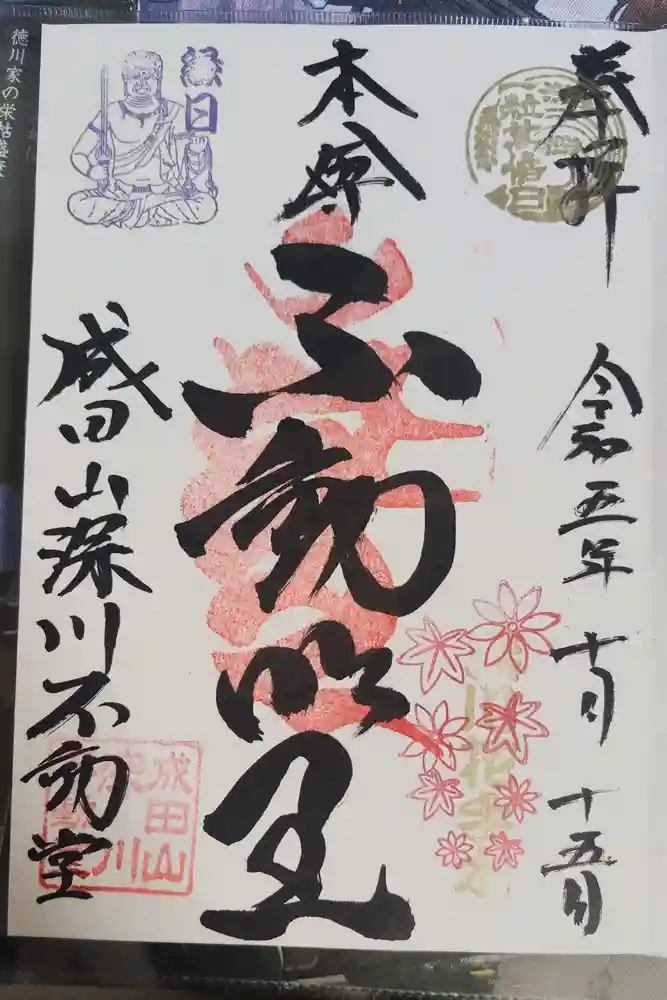 奉拝
令和五年 十月 十五日
本尊
不動明王
成田山深川不動堂
縁日
成田山
深川
徳川家の栄枯盛衰